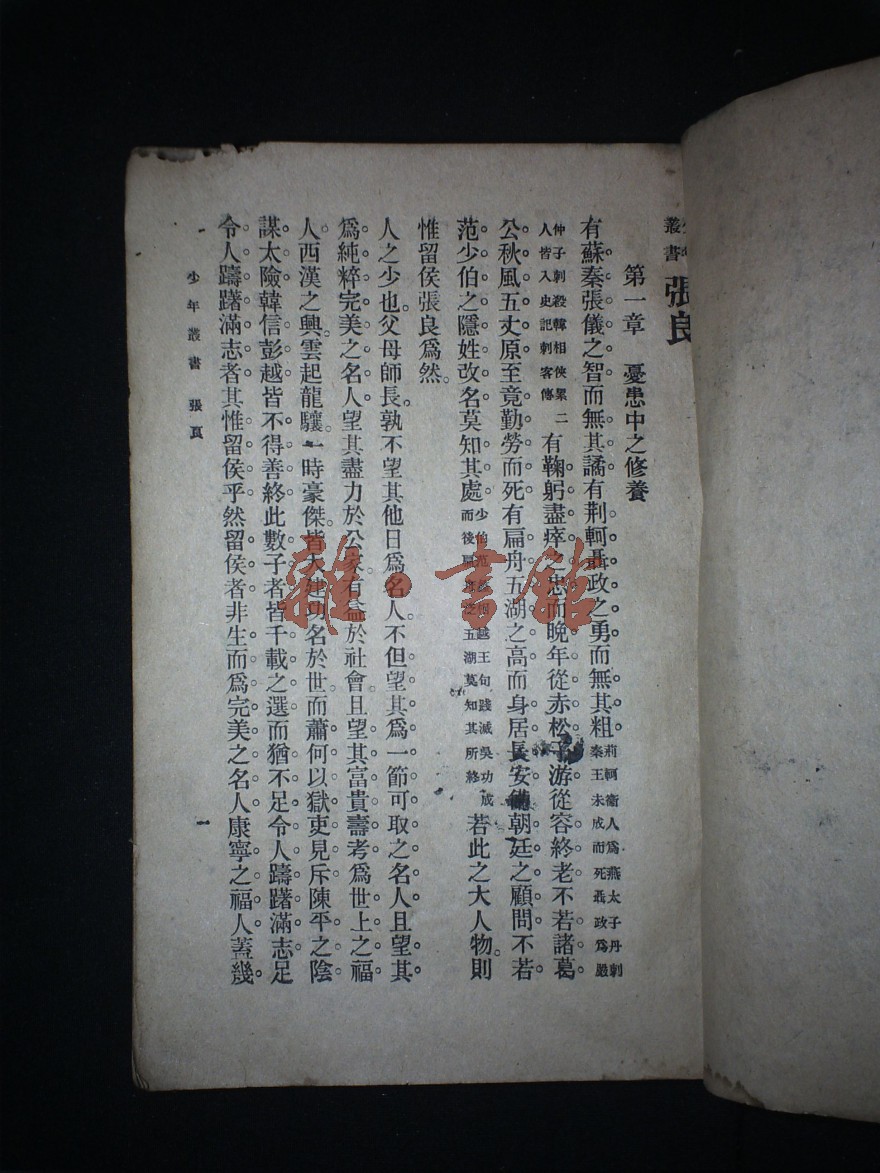 叢書 張良
第一章 憂患中之修養
有蘇秦張儀之智而無其譎。有荆軻聶政之勇而無其粗。荊軻衞人為燕太子丹刺秦王未成而死聶政為嚴
仲子刺殺韓相俠累二人皆入史記刺客傳有鞠躬盡瘁之忠而晚年從赤松子游從容終老不若諸葛
公秋風五丈原至竟勤勞而死有扁舟五湖之高而身居長安備朝廷之顧問不若
范少伯之隱姓改名莫知其處。少伯范蠡相越王句踐滅吳功成而後扁舟泛五湖莫知其所終若此之大人物。則
惟留侯張良爲然。
人之少也。父母師長。孰不望其他日爲名人。不但望其爲一節可取之名人。且望其
爲純粹完美之名人。望其盡力於公衆。有益於社會。且望其富貴壽考。爲世上之福
人。西漢之興。雲起龍驤。一時豪傑。皆大建功名於世。而蕭何以獄吏見斥。陳平之陰
謀太險。韓信彭越皆不得善終。此數子者。皆千載之選。而猶不足令人躊躇滿志。足
令人躊躇滿志者。其惟留侯乎。然留侯者。非生而爲完美之名人。康寧之福人。蓋幾
少年叢書 張良
一
雜·書館